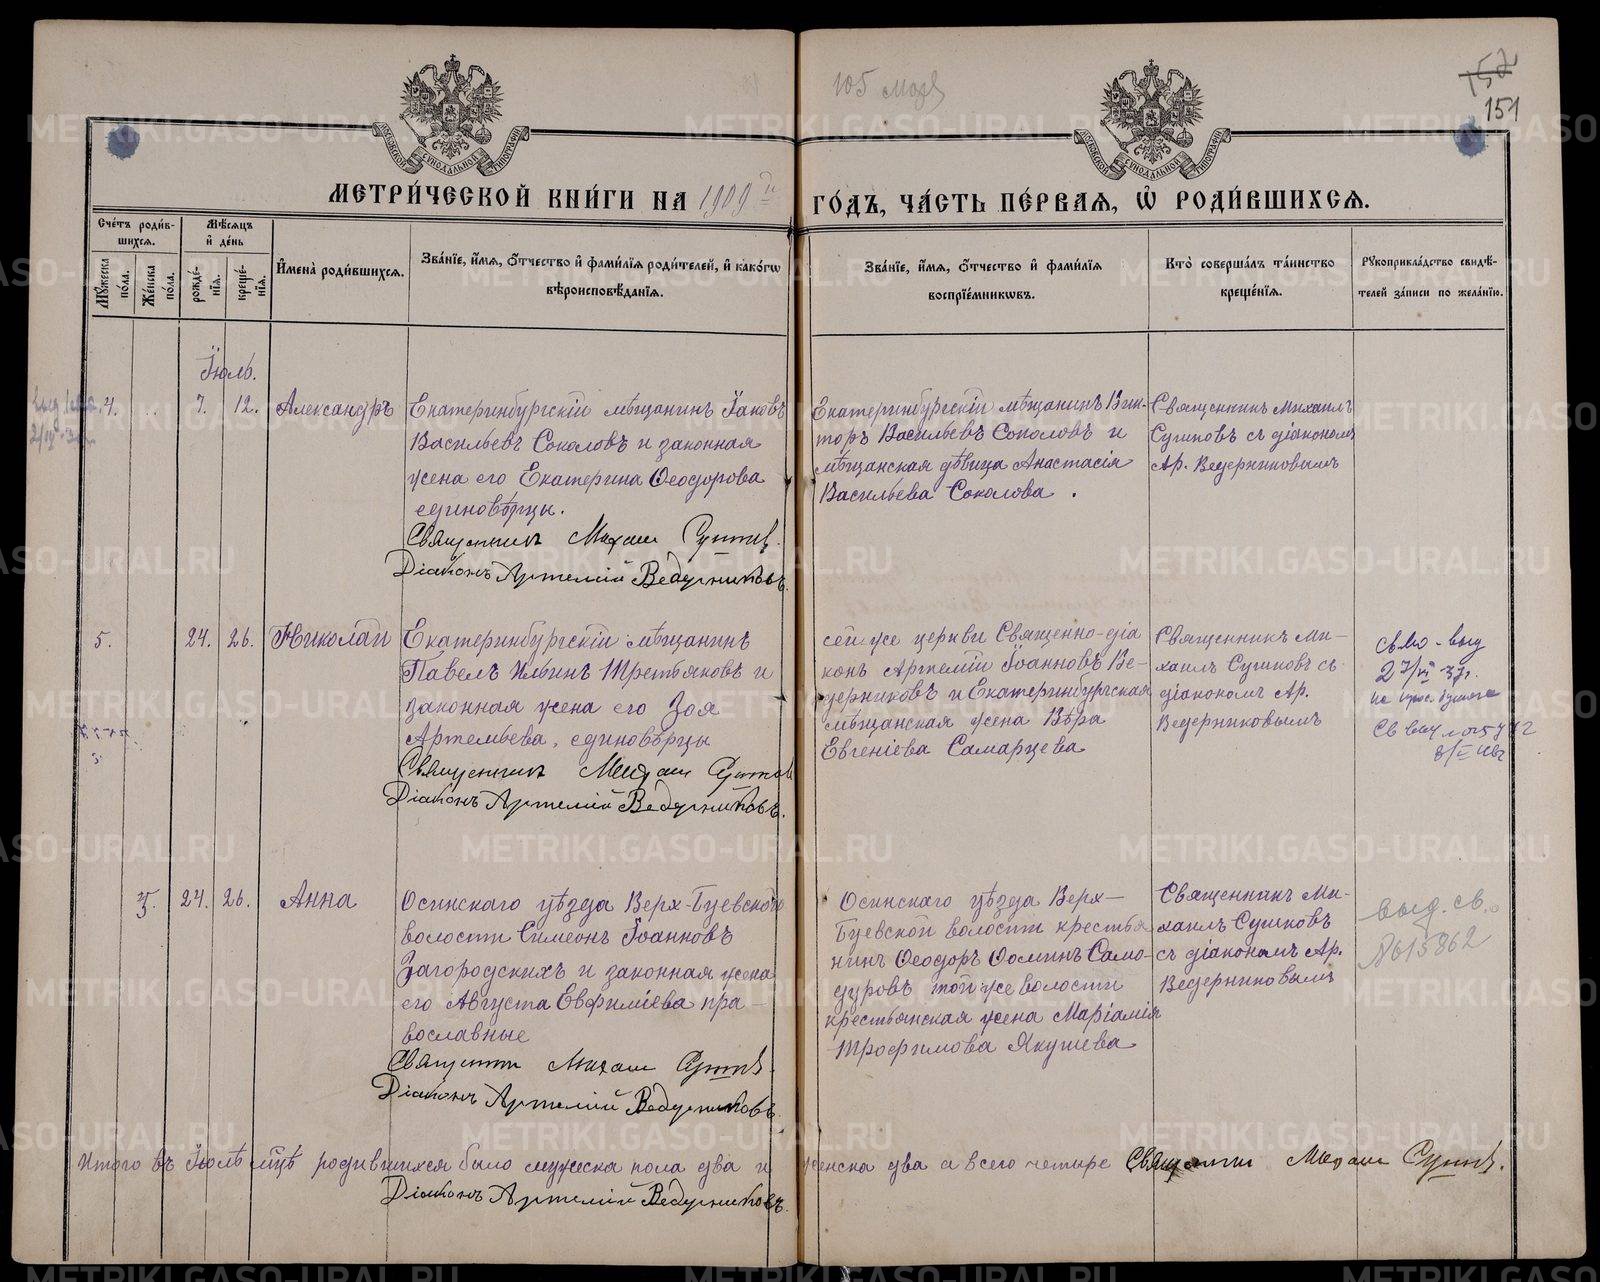 152
151
105
МОСКОВСКОЙ СѴНОДАЛЬНОЙ ТИПОГРАФІИ
МОСКОВСКОЙ СѴНОДАЛЬНОЙ ТИПОГРАФІИ
МЕТРИ́ЧЕСКОЙ КНИ́ГИ НА 1909 й
ГО́ДЪ, ЧА́СТЬ ПЕ́РВАѦ, Ѽ РОДИ́ВШИХСѦ.
Сче́тъ роди́в-
шихсѧ.
Мꙋ́жеска по́ла.
Же́нска по́ла.
Мѣ́сѧцъ
и҆ де́нь
рожде́-
нїѧ.
креще́-
нїѧ.
И҆мена̀ роди́вшихсѧ.
Зва́нїе, и҆́мѧ, ѻ҆́тчество и҆ фами́лїѧ роди́телей, и҆ како́гѡ
вѣроисповѣ́данїѧ.
Зва́нїе, и҆́мѧ, ѻ҆́тчество и҆ фами́лїѧ
воспрїе́мникѡвъ.
Кто̀ соверша́лъ та́инство
креще́нїѧ.
Рꙋкоприкла́дство свидѣ́-
телей за́писи по жела́нїю.
Іюль.
4.
7.
12.
Александръ
Екатеринбургскій мѣщанинъ Іаковъ
Васильевъ Соколовъ и законная
жена его Екатерина Ѳеодорова
единовѣрцы.
Священникъ Михаил Сушков.
Діаконъ Артемій Ведерниковъ.
Екатеринбургскій мѣщанинъ Вик-
торъ Васильевъ Соколовъ и
мѣщанская дѣвица Анастасія
Васильева Соколова.
Священникъ Михаилъ
Сушковъ съ діакономъ
Ар. Ведерниковымъ
5.
24.
26.
Николай
Екатеринбургскій мѣщанинъ
Павелъ Ильинъ Третьяковъ и
законная жена его Зоя
Артемьева, единовѣрцы
Священникъ Михаил Сушков
Діаконъ Артемій Ведерниковъ.
сей же церкви Священно-діа
конъ Артемій Іоанновъ Ве-
дерниковъ и Екатеринбургская
мѣщанская жена Вѣра
Евгеніева Самарцева
Священникъ Ми-
хаилъ Сушковъ съ
діакономъ Ар.
Ведерниковымъ
св-во выд
5.
24.
26.
Анна
Осинскаго уѣзда Верх-Буевской
волости Симеонъ Іоанновъ
Загородскихъ и законная жена
его Августа Евфиміева пра-
вославные
Священник Михаил Сушков.
Діаконъ Артемій Ведерниковъ
Осинскаго уѣзда Верх-
Буевской волости крестья
нинъ Ѳеодоръ Ѳоминъ Само-
дуровъ той же волости
крестьянская жена Маріамія
Трофимова Якушева
Священникъ Ми-
хаилъ Сушковъ
съ діакономъ Ар.
Ведерниковымъ
выд. св.
№615862
Итого въ Іюлѣ мцѣ родившихся было мужеска пола два и женска два а всего четыре Священник Михаил Сушков.
Діаконъ Артемій Ведерниковъ.
METRIKI.GASO-URAL.RU